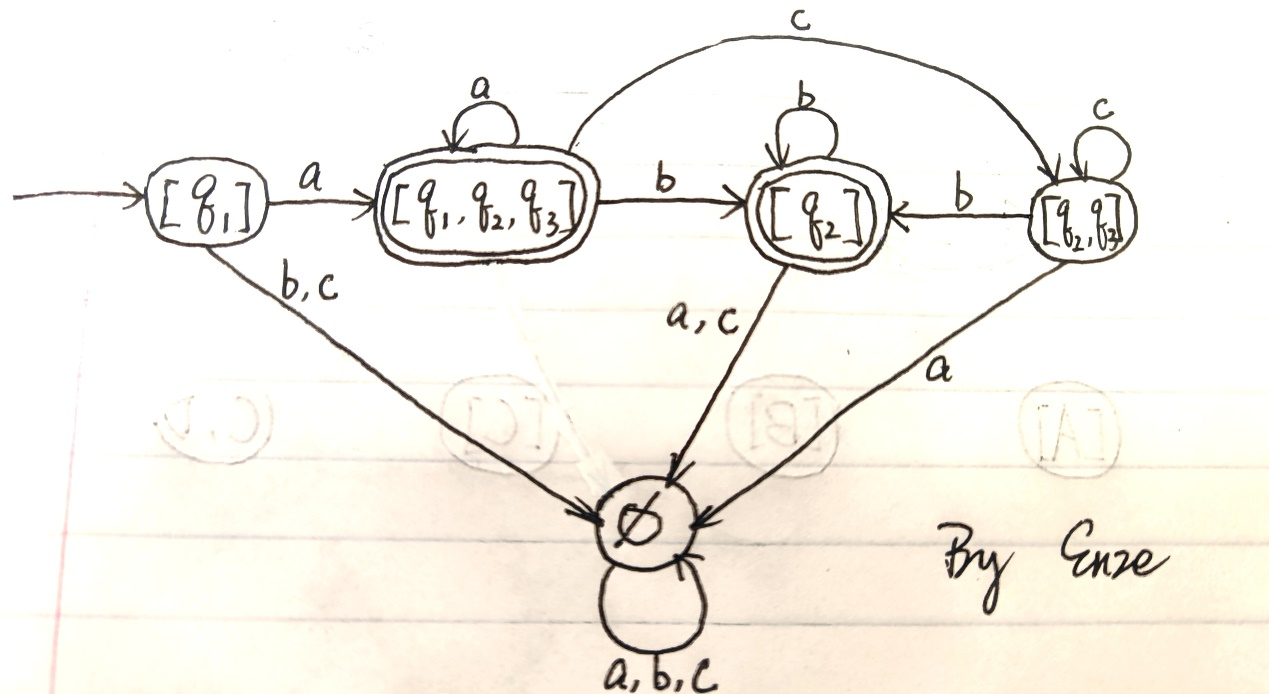 c
a
b
c
[q₁]
a
[q₁, q₂, q₃]
b
[q₂]
b
[q₂, q₃]
b, c
a, c
a
[C]
[B]
[A]
∅
By Enze
a, b, c